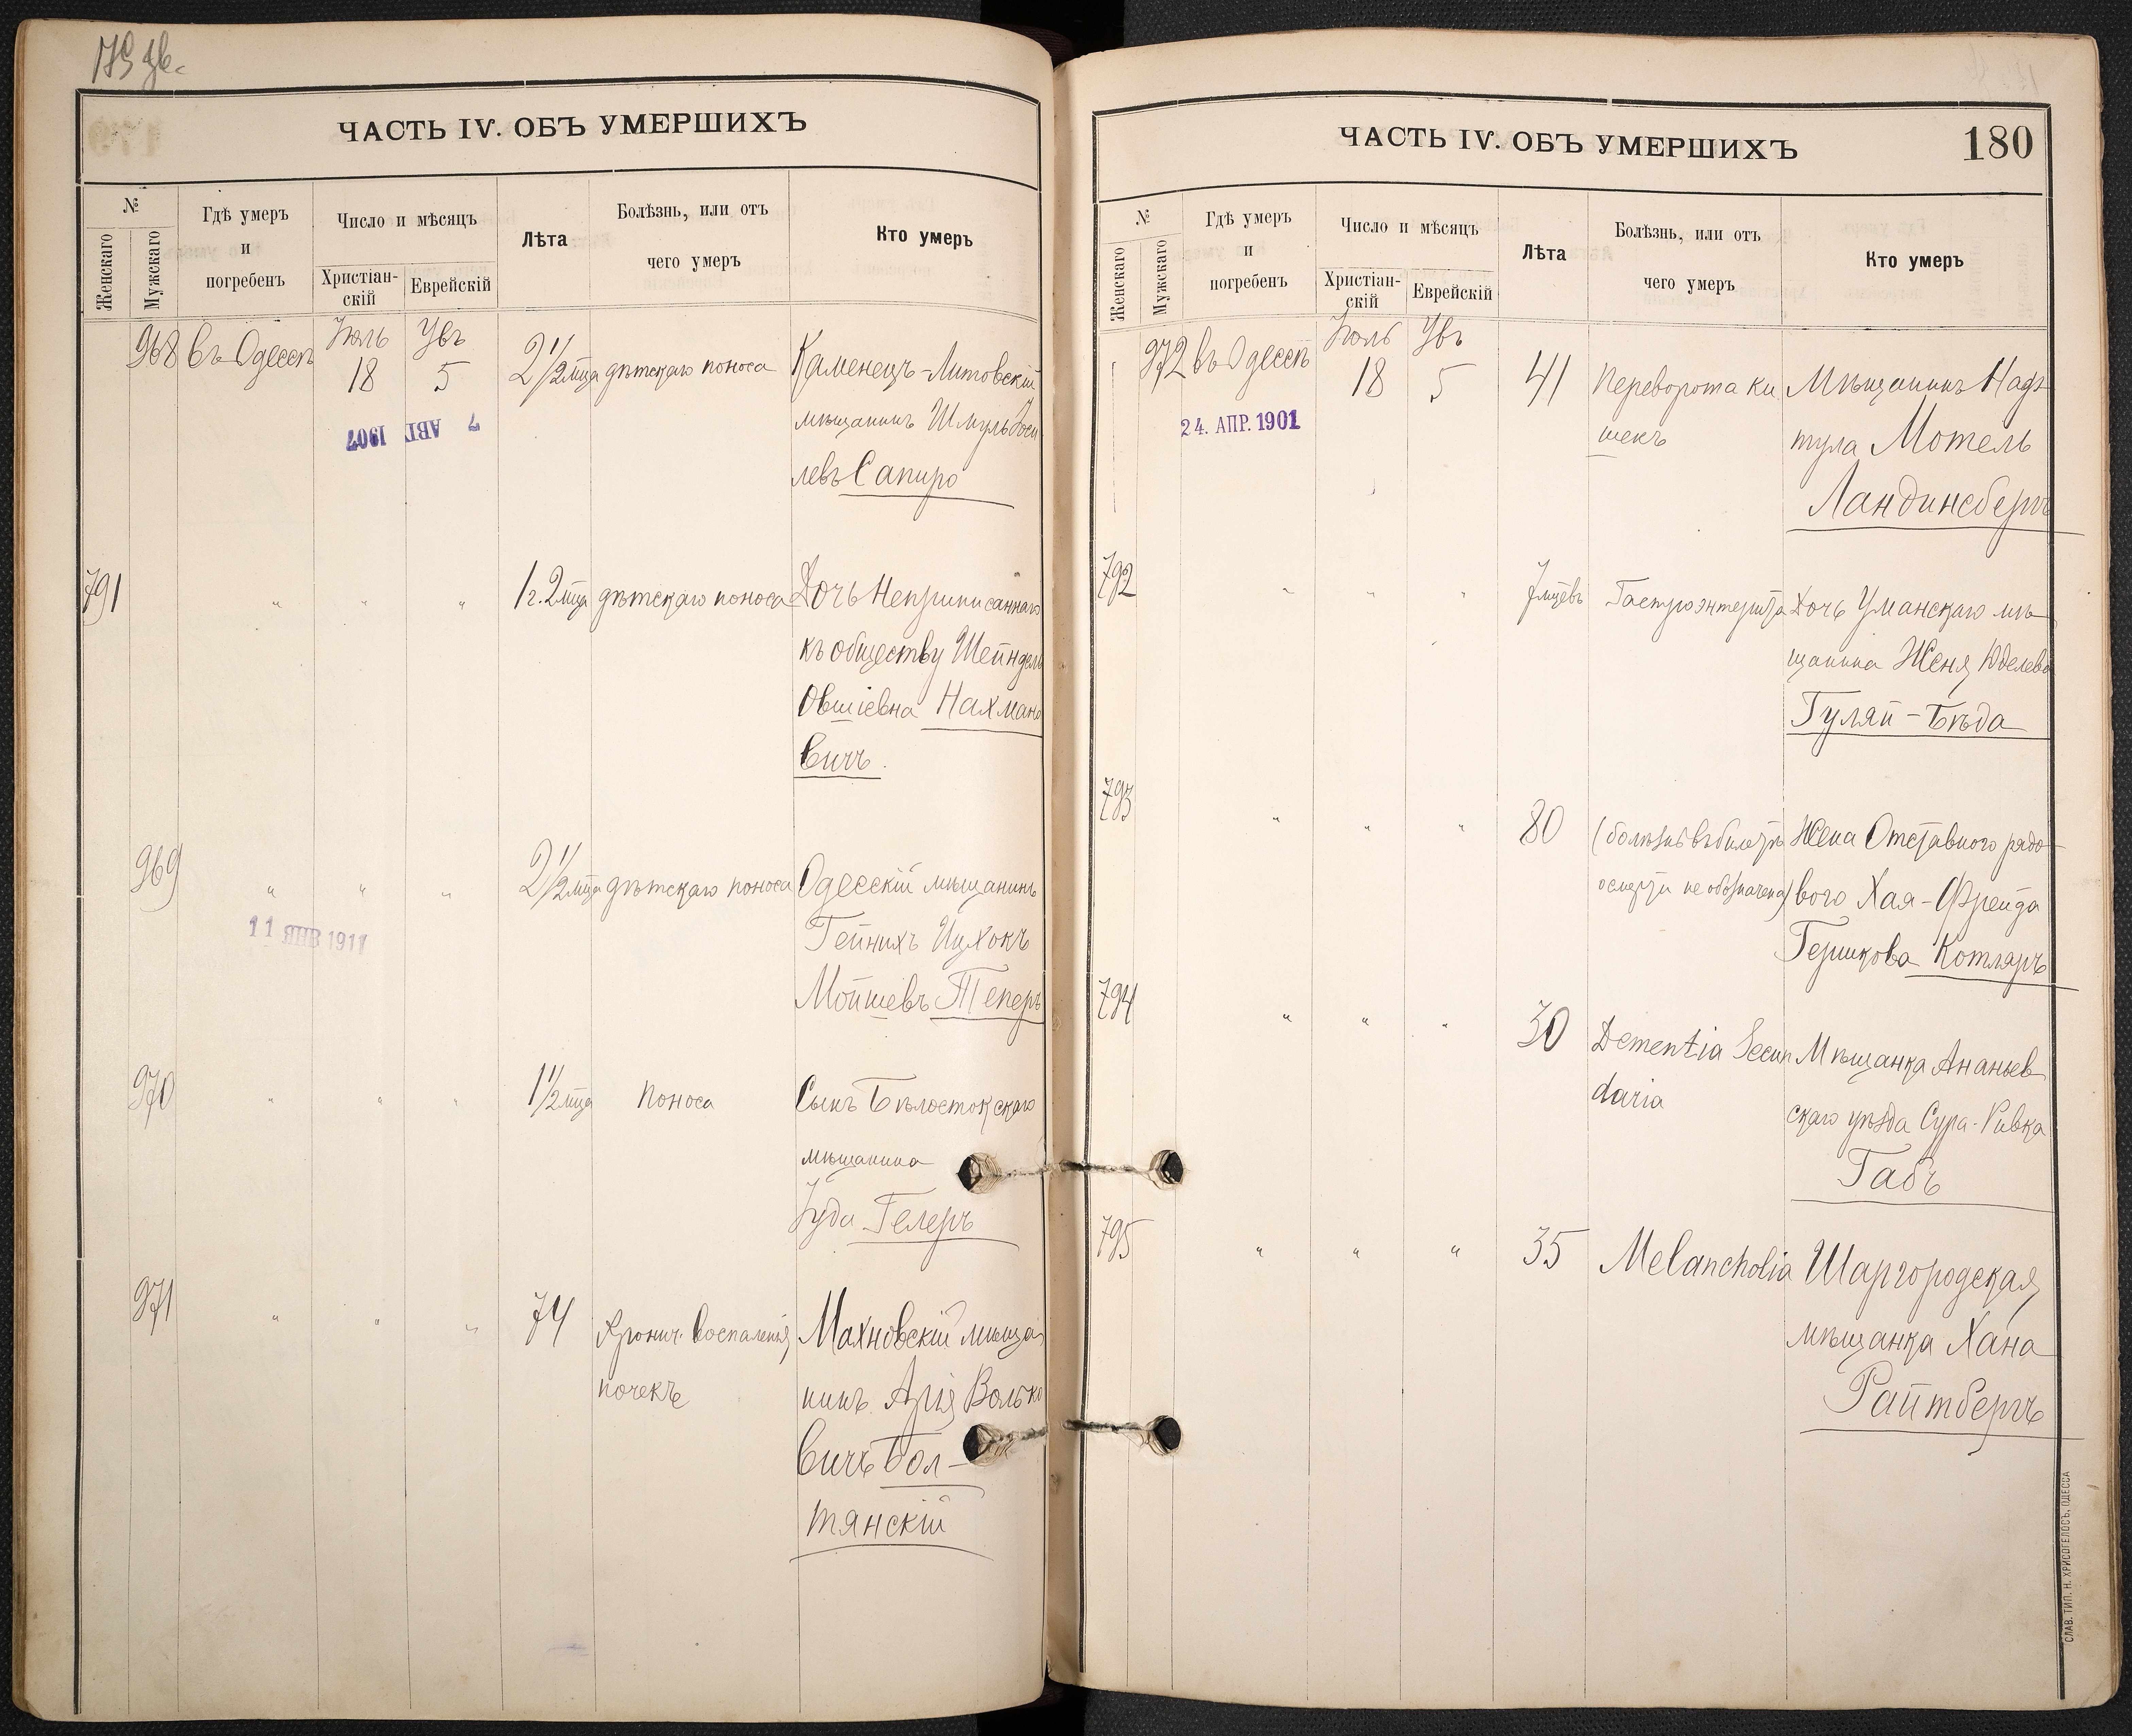 179 об.
ЧАСТЬ IV. ОБЪ УМЕРШИХЪ
№
Женскаго
Мужскаго
Гдѣ умеръ
и
погребенъ
Число и мѣсяцъ
Христіан-
скій
Еврейскій
Лѣта
Болѣзнь, или отъ
чего умеръ
Кто умеръ
968 въ Одессѣ Іюль 18 Увъ 5 2 1/2 мца дѣтскаго поноса Каменецъ-Литовскій
7 АВГ 1907
мѣщанинъ Шмуль Іоси
левъ Сапиро
791 " " " 1 г. 2 мца дѣтскаго поноса Дочь Неприписаннаго
къ обществу Шейндель
Овшіевна Нахмано
вичъ.
969 " " " 2 1/2 мца дѣтскаго поноса Одесскій мѣщанинъ
11 ЯНВ 1911
Гейнихъ Ицхокъ
Мойшевъ Теперъ
970 " " " 1 1/2 мца Поноса Сынъ Бѣлостокскаго
мѣщанина
Іуда Гелеръ
971 " " " 74 Хронич. воспаленія Махновскій мѣща
почекъ
нинъ Арія Волько
вичъ Бол-
тянскій
ЧАСТЬ IV. ОБЪ УМЕРШИХЪ
180
№
Женскаго
Мужскаго
Гдѣ умеръ
и
погребенъ
Число и мѣсяцъ
Христіан-
скій
Еврейскій
Лѣта
Болѣзнь, или отъ
чего умеръ
Кто умеръ
972 въ Одессѣ Іюль 18 Увъ 5 41 Переворота ки Мѣщанинъ Надъ
24. АПР. 1901
шекъ
тула Мотель
Ландинсбергъ
792 " " " 7 мцевъ Гастроэнтерита Дочь Уманскаго мѣ
щанина Женя Юделева
Гуляй-Бѣда
793 " " " 80 (болѣзнь въ билетѣ Жена Отставного рядо
о смерти не обозначена) вого Хая-Фрейда
Гершкова Котляръ
794 " " " 30 Dementia Secun Мѣщанка Ананьев
daria
скаго уѣзда Сура-Ривка
Габъ
795 " " " 35 Melancholia Шаргородская
мѣщанка Хана
Райтбергъ
СЛАВ. ТИП. Н. ХРИСОГЕЛОСЪ, ОДЕССА